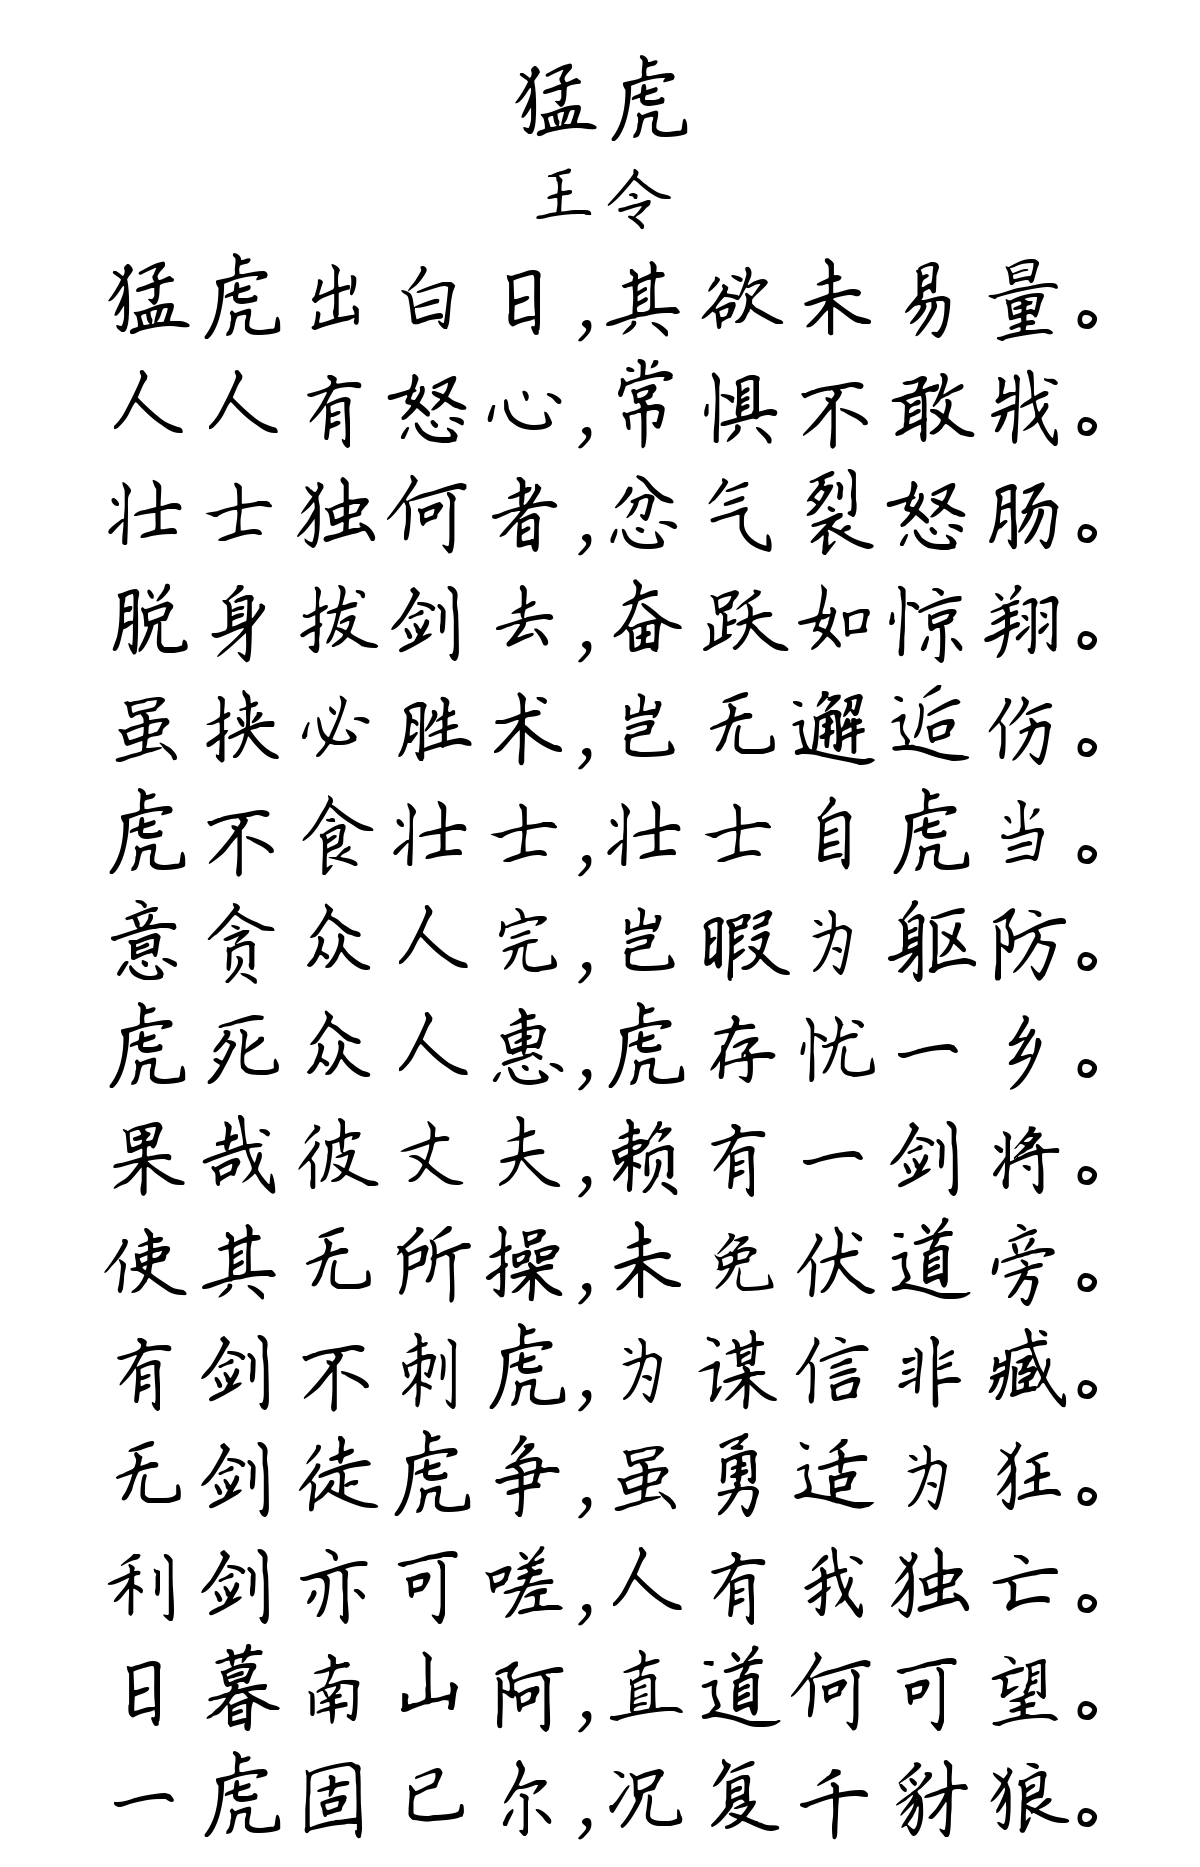 猛虎
王令
猛虎出白日,其欲未易量。
人人有怒心,常惧不敢戕。
壮士独何者,忿气裂怒肠。
脱身拔剑去,奋跃如惊翔。
虽挟必胜术,岂无邂逅伤。
虎不食壮士,壮士自虎当。
意贪众人完,岂暇为躯防。
虎死众人惠,虎存忧一乡。
果哉彼丈夫,赖有一剑将。
使其无所操,未免伏道旁。
有剑不刺虎,为谋信非臧。
无剑徒虎争,虽勇适为狂。
利剑亦可嗟,人有我独亡。
日暮南山阿,直道何可望。
一虎固已尔,况复千豺狼。